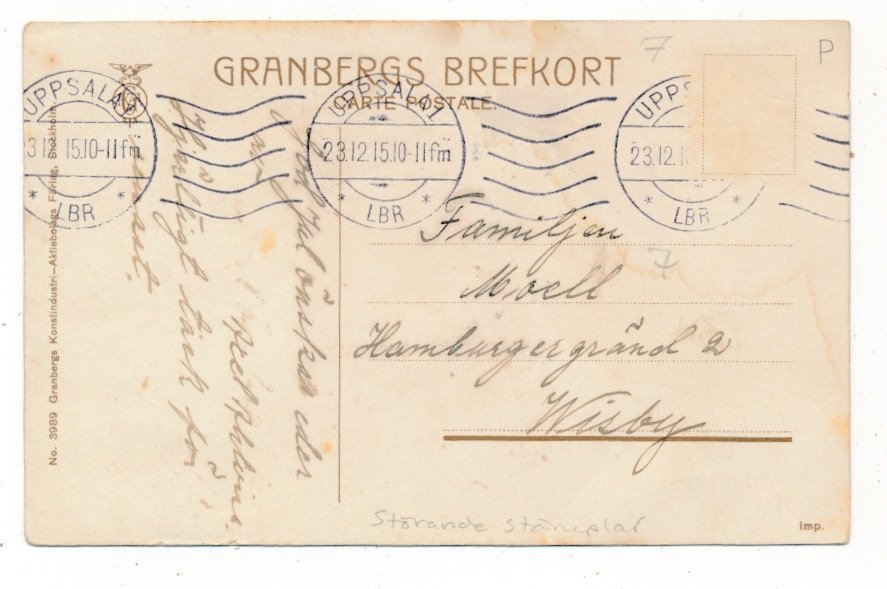 GRANBERGS BREFKORT
CARTE POSTALE.
7
P
UPPSALA 1
23.12.15.10-11fm
LBR
UPPSALA 1
23.12.15.10-11fm
LBR
UPPS
23.12.15
LBR
God jul önskas eder
Hjärtligt tack för
senast.
Familjen
Moell
7
Hamburgergränd 2
Wisby
Störande stämplar
Imp.
No. 3989 Granbergs Konstindustri-Aktiebolags Förlag, Stockholm.